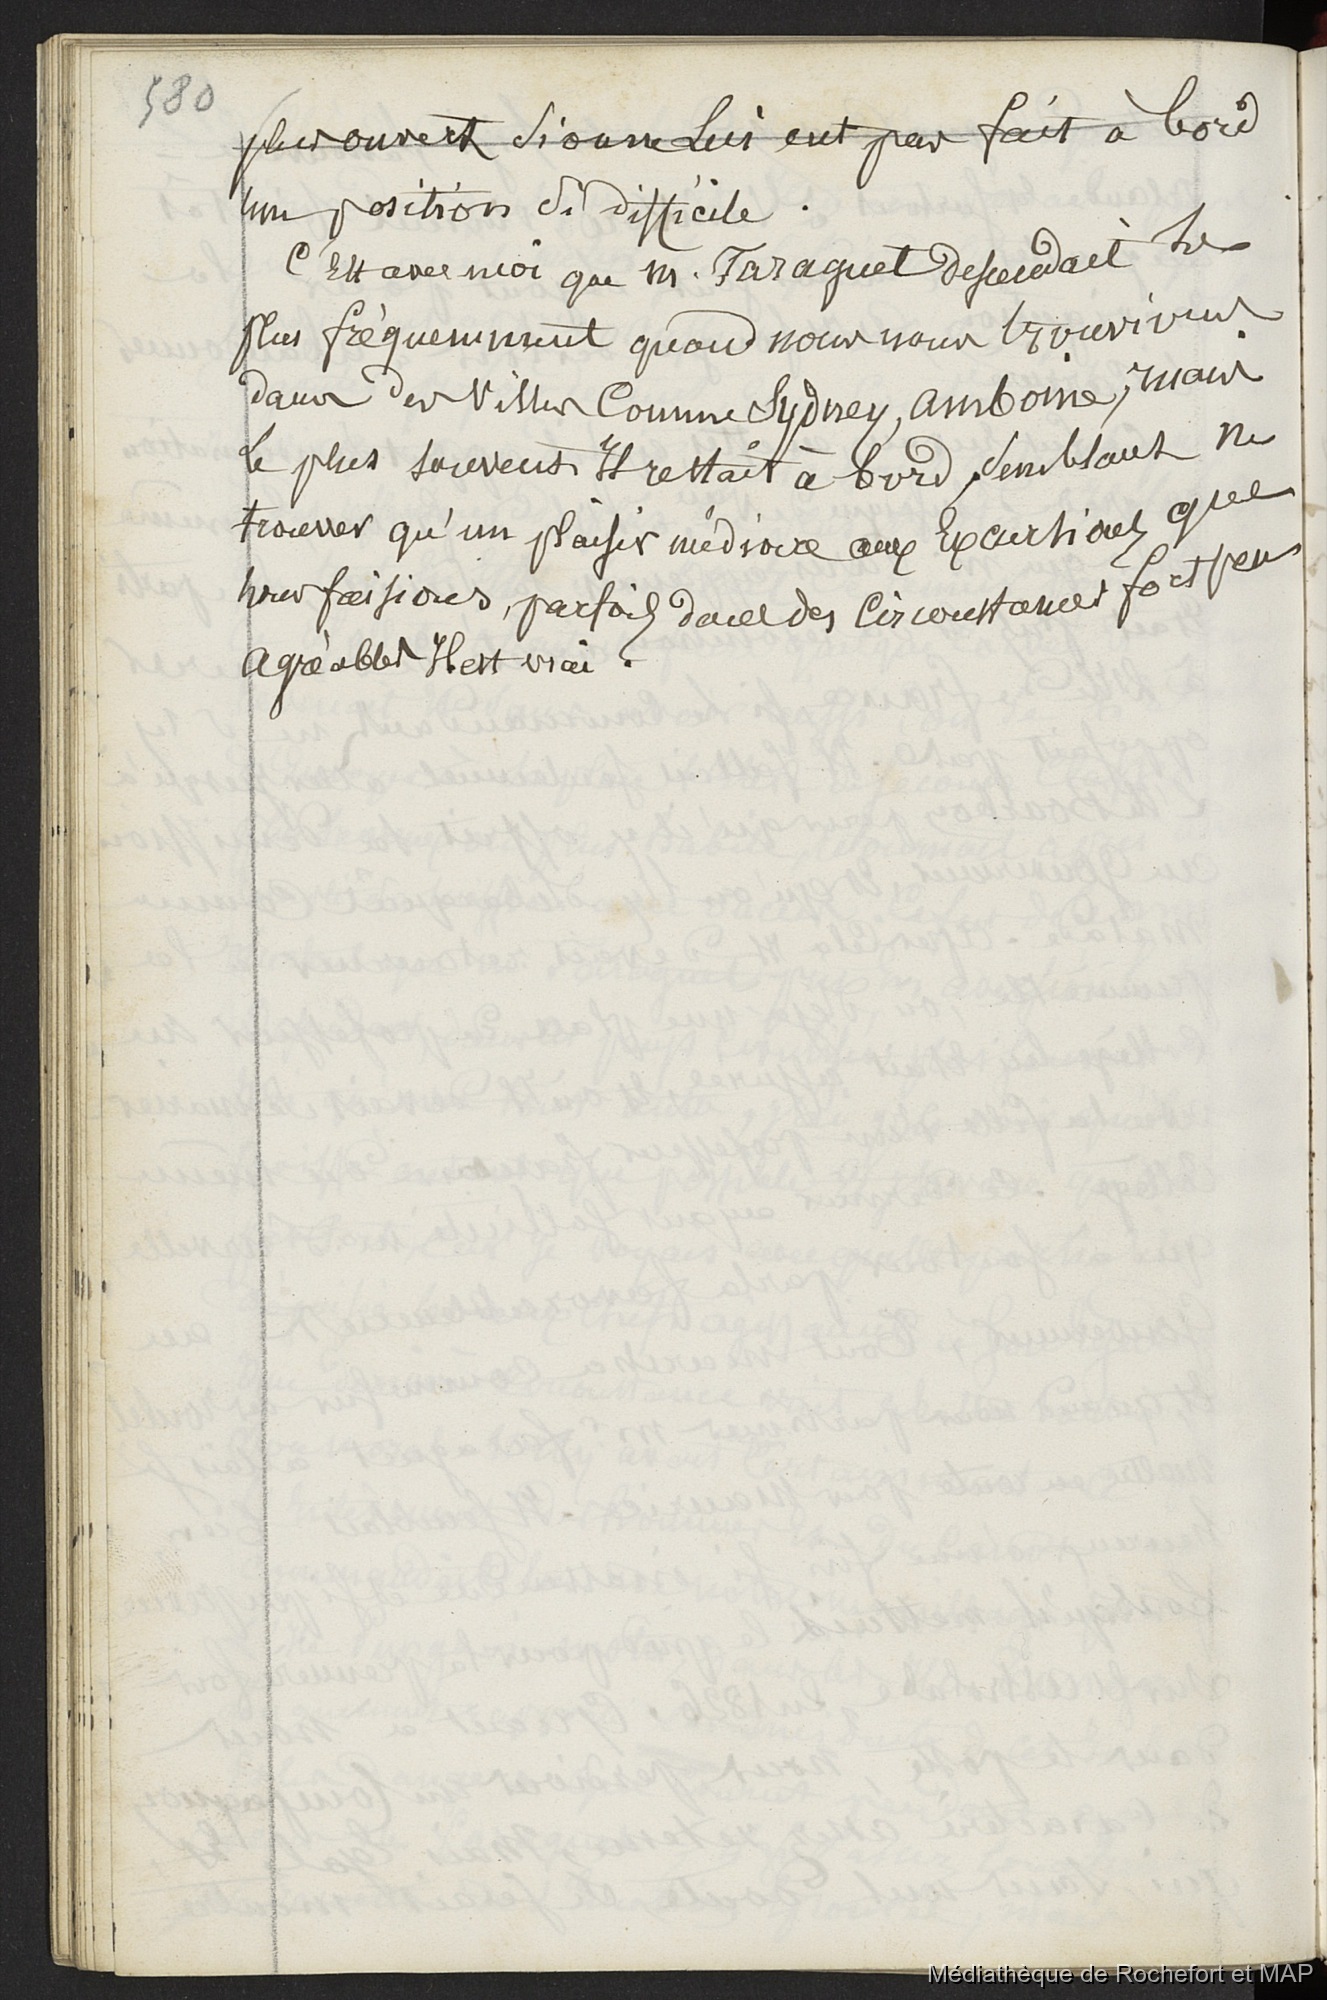 580
plus ouvert si on ne lui eut pas fait à bord
une position si difficile.
C'est avec moi que M. Faraguet descendait le
plus fréquemment quand nous nous trouvions
dans des villes comme Sydney, amboine; mais
le plus souvent Il restait à bord, semblant ne
trouver qu'un plaisir médiocre aux Excursions que
nous faisions, parfois dans des circonstances fort peu
agréables Il est vrai.
Médiathèque de Rochefort et MAP